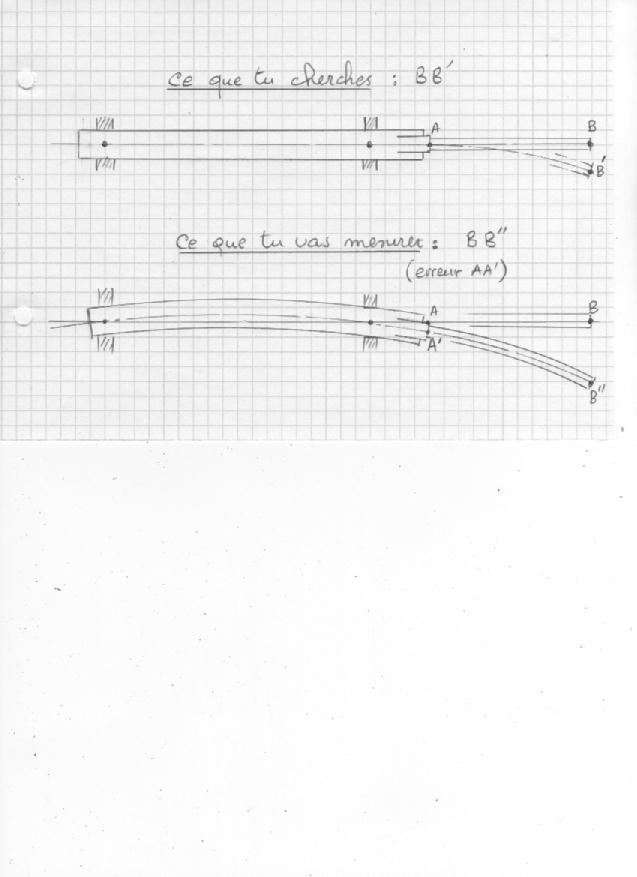 Ce que tu cherches : BB'
A
B
B'
Ce que tu vas mesurer : BB"
(erreur AA')
A
B
A'
B"